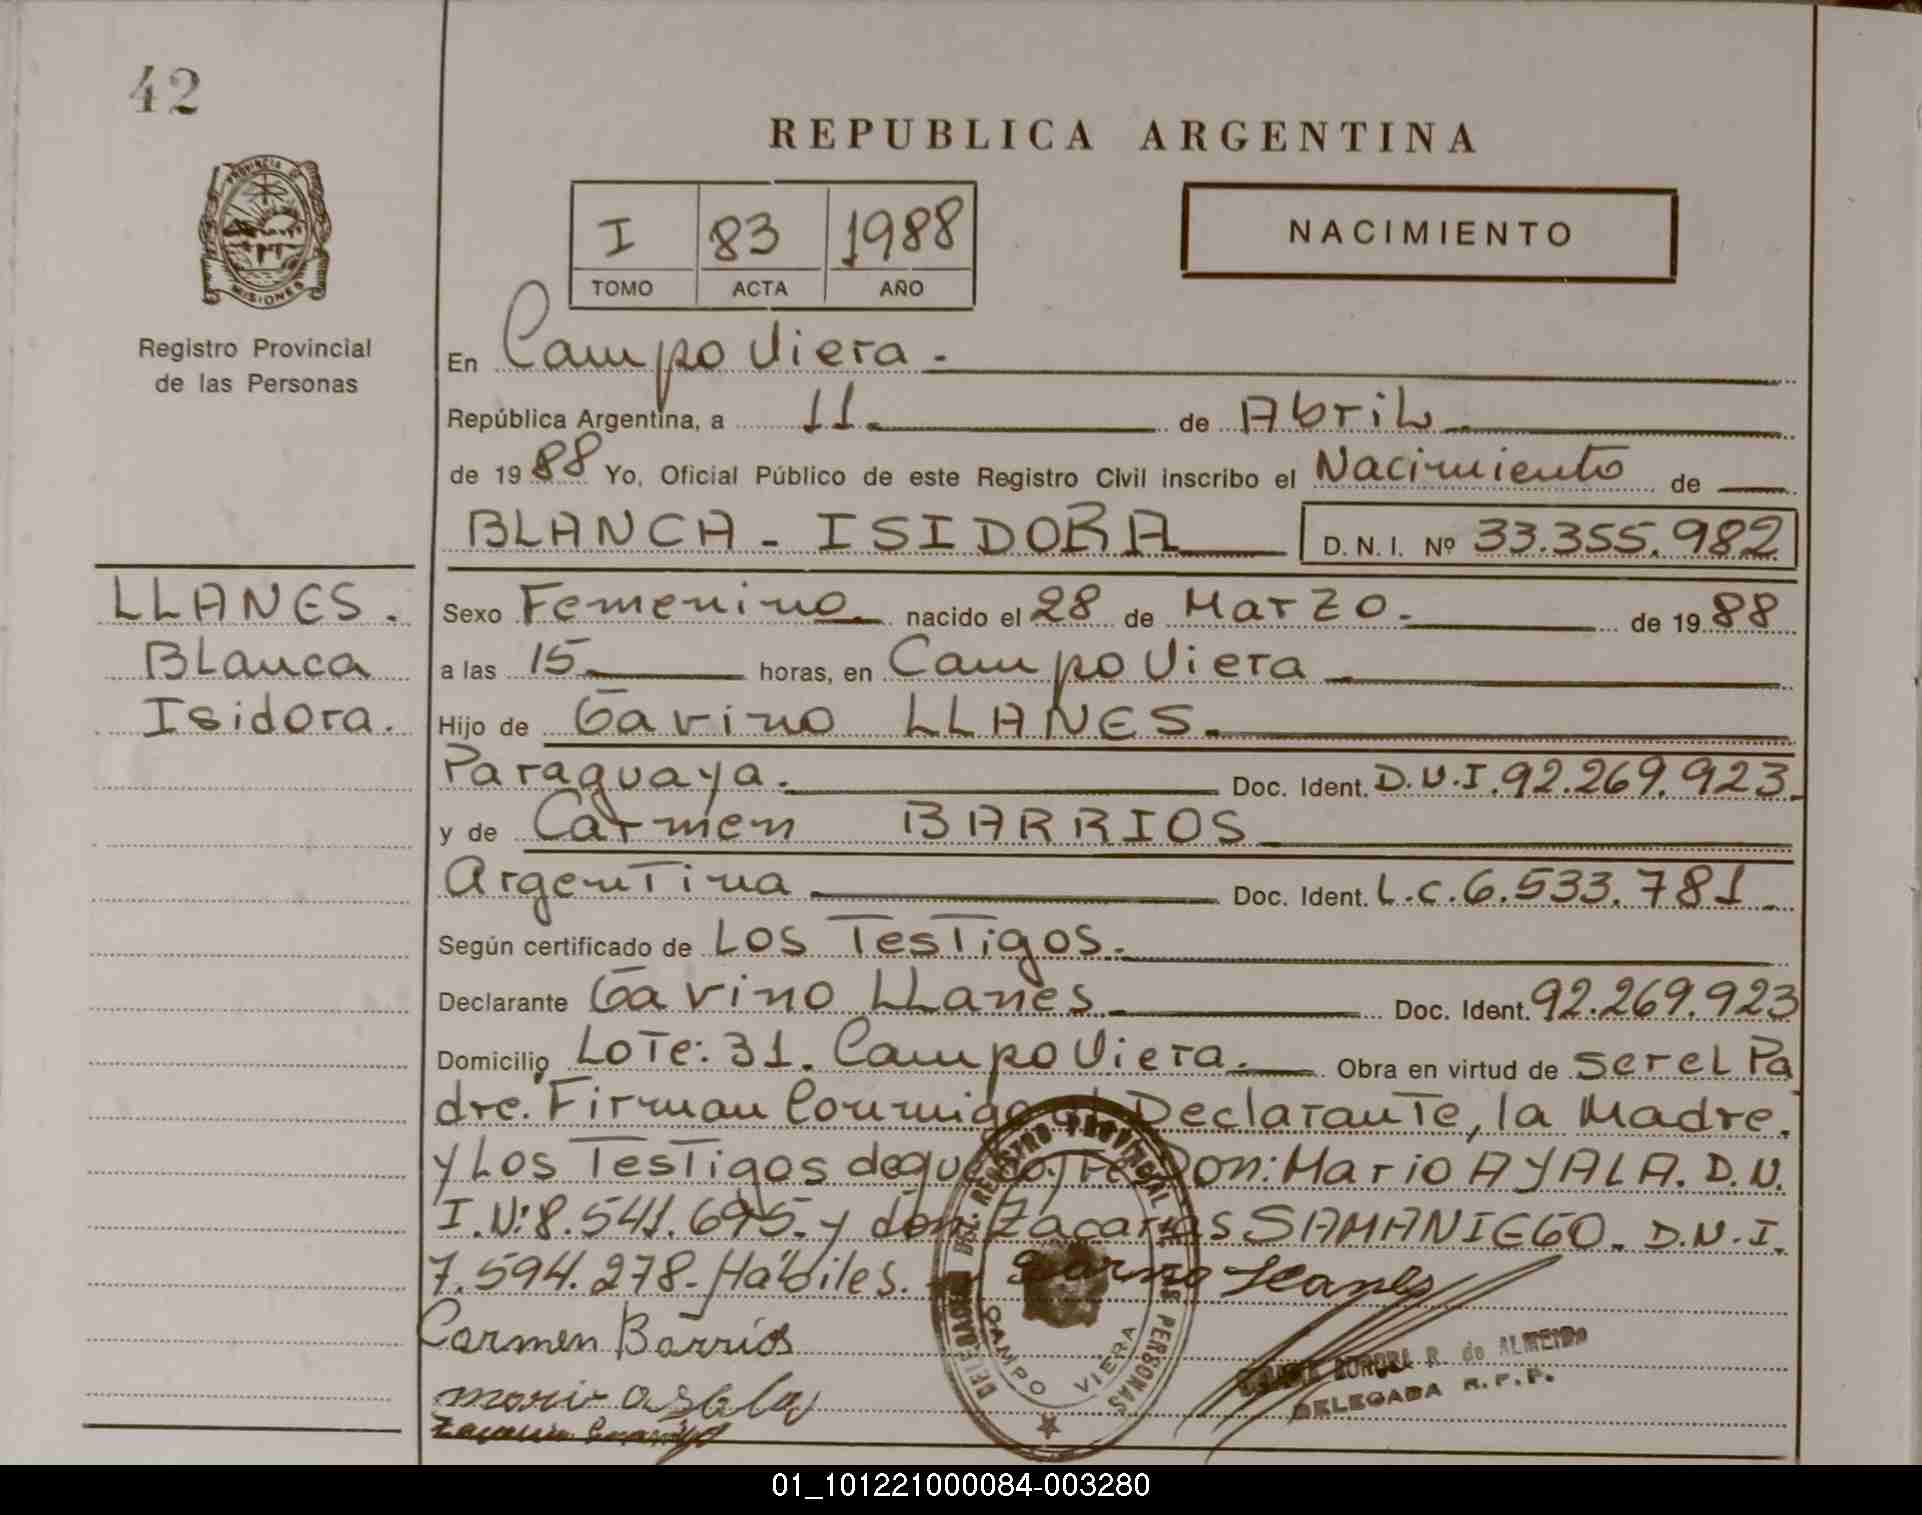 42
REPUBLICA ARGENTINA
PROVINCIA DE
MISIONES
Registro Provincial
de las Personas
I 83 1988
TOMO ACTA AÑO
NACIMIENTO
En Campo Viera.
República Argentina, a 11. de Abril
de 1988 Yo, Oficial Público de este Registro Civil inscribo el Nacimiento de
BLANCA - ISIDORA D. N. I. Nº 33.355.982
LLANES.
Blanca
Isidora.
Sexo Femenino nacido el 28 de Marzo. de 1988
a las 15 horas, en Campo Viera
Hijo de Gavino LLANES.
Paraguaya. Doc. Ident. D.N.I. 92.269.923.
y de Carmen BARRIOS
Argentina Doc. Ident. L.C. 6.533.781
Según certificado de Los Testigos.
Declarante Gavino Llanes Doc. Ident. 92.269.923
Domicilio Lote: 31. Campo Viera. Obra en virtud de ser el Pa
dre. Firman Conmigo el Declarante, la Madre.
y Los Testigos de Don: Mario AYALA. D.N.
I. N: 8.541.695. y don Zacarias SAMANIEGO. D.N.I.
7.594.278. Hábiles.
Llanes
Carmen Barrios
DELEGACION REGISTRO PROVINCIAL DE LAS PERSONAS
CAMPO VIERA
R. de ALMEIDA
DELEGADA R.P.P.
01_101221000084-003280